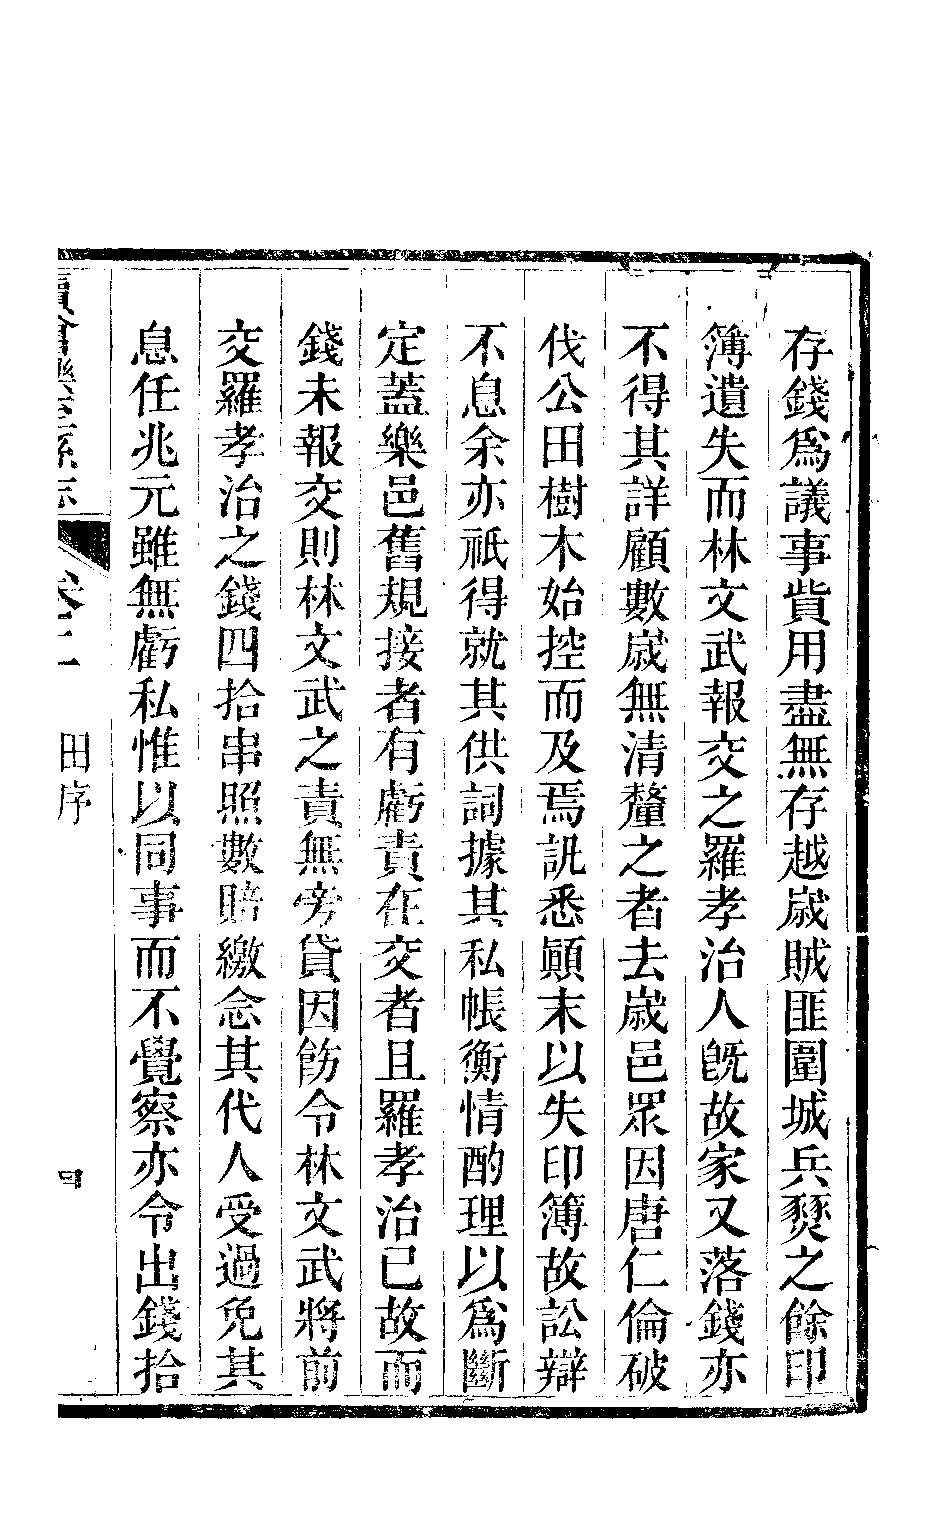 存錢爲議事貲用盡無存越歲賊匪圍城兵燹之餘印
簿遺失而林文武報交之羅孝治人旣故家又落錢亦
不得其詳顧數歲無清釐之者去歲邑眾因唐仁倫破
伐公田樹木始控而及焉訊悉顚末以失印簿故訟辯
不息余亦祇得就其供詞據其私帳衡情酌理以爲斷
定蓋樂邑舊規接者有虧責在交者且羅孝治已故而
錢未報交則林文武之責無旁貸因飭令林文武將前
交羅孝治之錢四拾串照數賠繳念其代人受過免其
息任兆元雖無虧私惟以同事而不覺察亦令出錢拾
卷二 田序 四